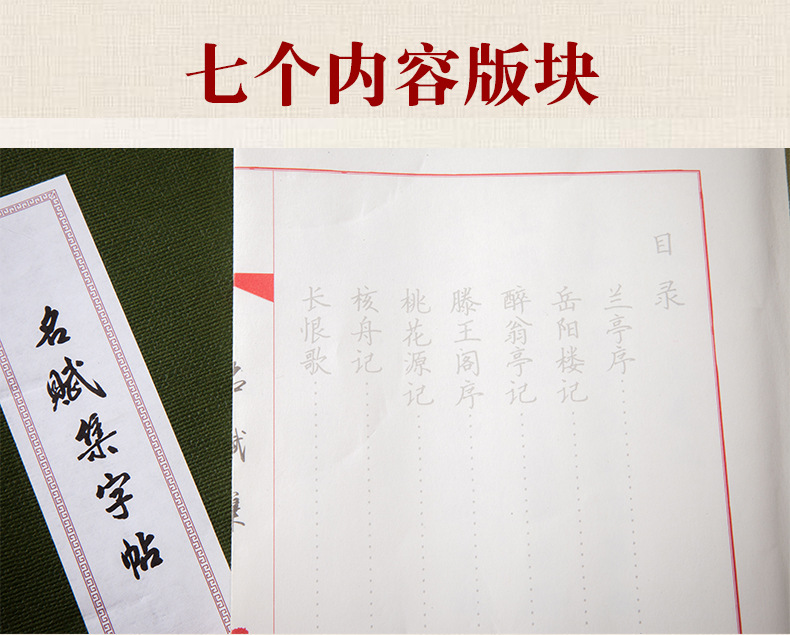 七个内容版块
名赋集字帖
目录
兰亭序
岳阳楼记
醉翁亭记
滕王阁序
桃花源记
核舟记
长恨歌